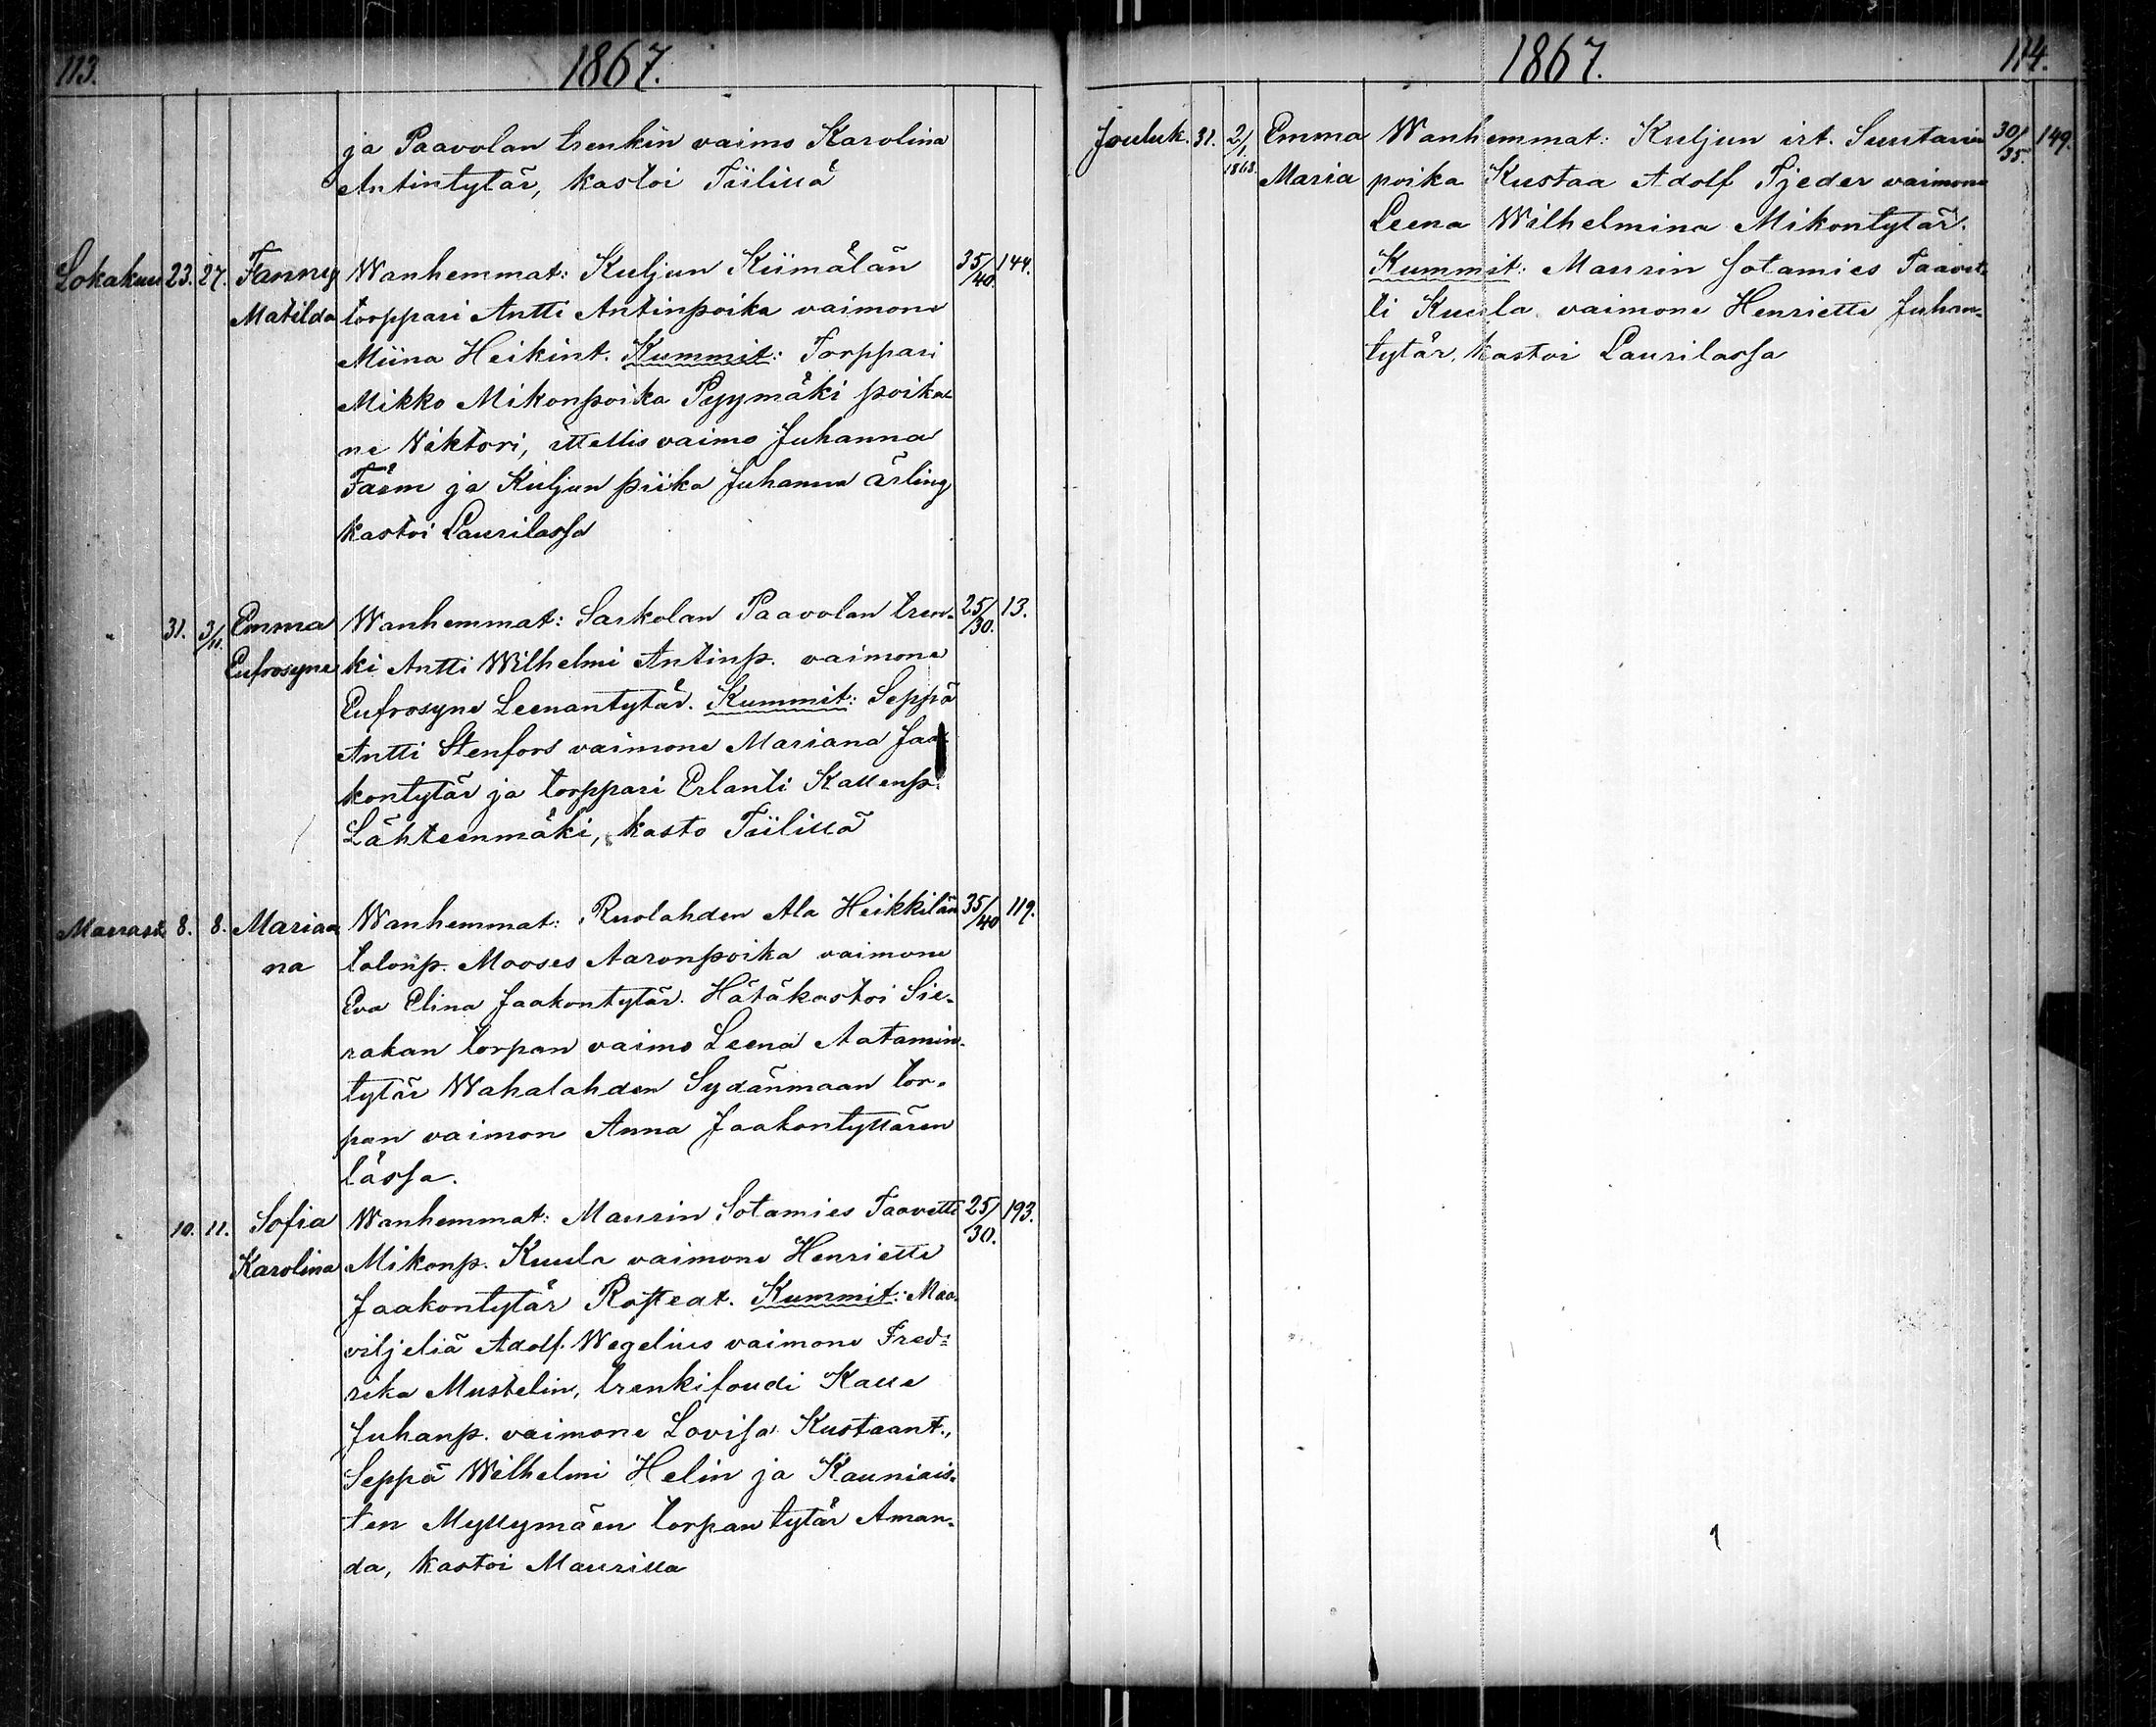 113.
1867.
ja Paavolan trenkin vaimo Karolina
Antintytär, kastoi Tiilillä
Lokakuu 23. 27. Fanny Wanhemmat: Kuljun Kiimälän 35/40. 144.
Matilda torppari Antti Antinpoika vaimone
Miina Heikint. Kummit: Torppari
Mikko Mikonpoika Pyymäki poika-
ne Viktori, ittellis vaimo Juhanna
Färm ja Kuljun piika Juhanna Ärling
kastoi Laurilassa
31. 3/11. Emma Wanhemmat: Sarkolan Paavolan tren- 25/30. 13.
Eufrosyne ki Antti Wilhelmi Antinp. vaimone
Eufrosyne Leenantytär. Kummit: Seppä
Antti Stenfors vaimone Mariana Jaa-
kontytär ja torppari Erlanti Kallenp.
Lähteenmäki, kasto Tiilillä
Marrask. 8. 8. Maria Wanhemmat: Ruolahden Ala Heikkilän 35/40 119.
na talonp. Mooses Aaronpoika vaimone
Eva Elina Jaakontytär. Hätäkastoi Sie-
rakan torpan vaimo Leena Aatamin-
tytär Wahalahden Sydänmaan tor-
pan vaimon Anna Jaakontyttären
lässä.
10. 11. Sofia Wanhemmat: Maurin Sotamies Taavetti 25/30. 193.
Karolina Mikonp. Kuula vaimone Henriette
Jaakontytär Rosteat. Kummit: Maa-
viljeliä Adolf Wegelius vaimone Fred-
rika Mustelin, trenkifoudi Kalle
Juhanp. vaimone Lovisa Kustaant.,
Seppä Wilhelmi Helin ja Kauniais-
ten Myllymäen torpan tytär Aman-
da, kastoi Maurilla
1867.
114.
Jouluk. 31. 2/1. 1868. Emma Wanhemmat: Kuljun irt. Suutarin 30/35. 149.
Maria poika Kustaa Adolf Tjeder vaimone
Leena Wilhelmina Mikontytär.
Kummit: Maurin Sotamies Taavet-
ti Kuula vaimone Henriette Juhan-
tytär, kastoi Laurilassa